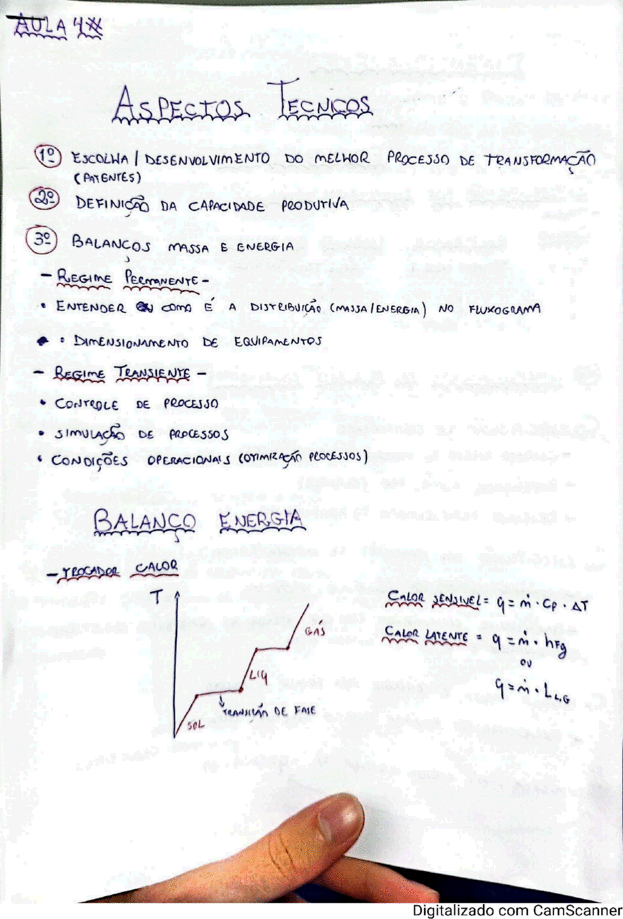 AULA 4
ASPECTOS TECNICOS
1º ESCOLHA / DESENVOLVIMENTO DO MELHOR PROCESSO DE TRANSFORMAÇÃO
(PATENTES)
2º DEFINIÇÃO DA CAPACIDADE PRODUTIVA
3º BALANÇOS MASSA E ENERGIA
- REGIME PERMANENTE -
• ENTENDER COMO É A DISTRIBUIÇÃO (MASSA/ENERGIA) NO FLUXOGRAMA
• DIMENSIONAMENTO DE EQUIPAMENTOS
- REGIME TRANSIENTE -
• CONTROLE DE PROCESSO
• SIMULAÇÃO DE PROCESSOS
• CONDIÇÕES OPERACIONAIS (OTIMIZAÇÃO PROCESSOS)
BALANÇO ENERGIA
- TROCADOR CALOR
T
GÁS
LIQ
SOL
TRANSIÇÃO DE FASE
CALOR SENSIVEL = q = ṁ · Cp · ΔT
CALOR LATENTE = q = ṁ · hFg
ou
q = ṁ · LLG
Digitalizado com CamScanner